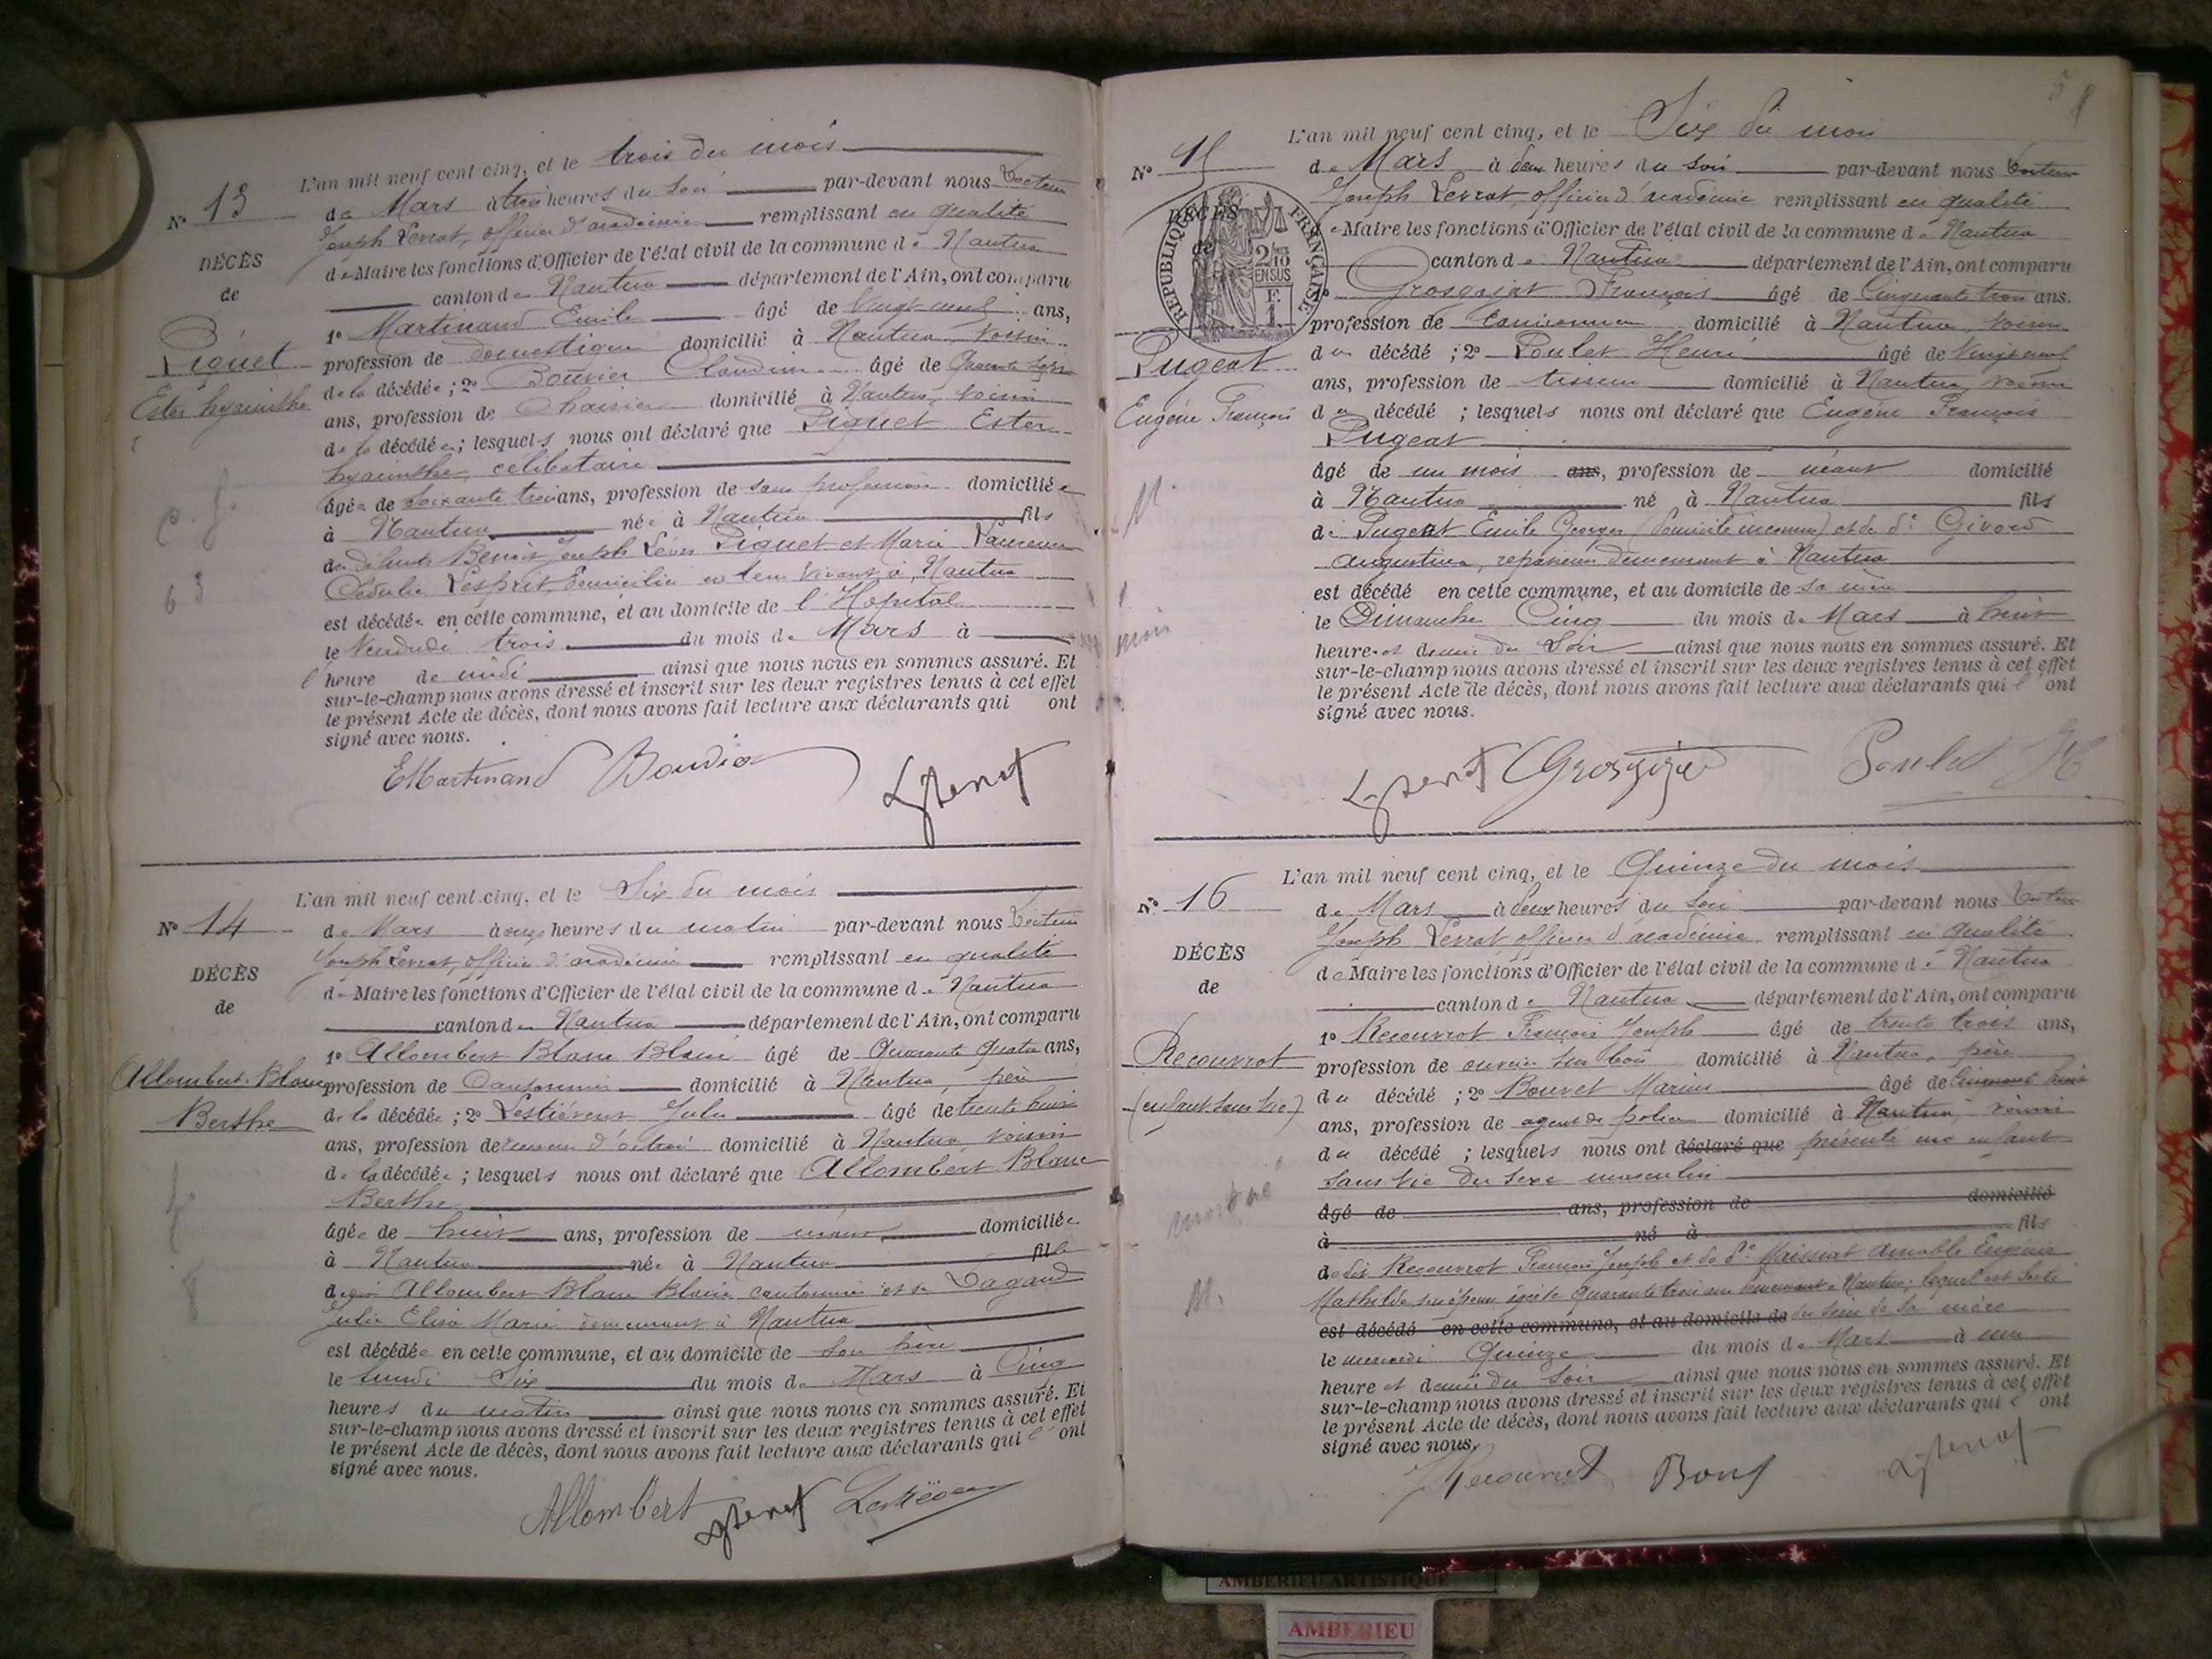 L'an mil neuf cent cinq, et le trois du mois
N° 13
de Mars à trois heures du soir par-devant nous Docteur
Joseph Levrat, officier d'académie remplissant en qualité
DÉCÈS
de Maire les fonctions d'Officier de l'état civil de la commune de Nantua
de
canton de Nantua département de l'Ain, ont comparu
1° Martinand Emile âgé de Vingt neuf ans,
Piquet
profession de domestique domicilié à Nantua, voisin
Ester hyacinthe
de la décédée ; 2° Bouvier Claudius âgé de Quarante
ans, profession de Chaisier domicilié à Nantua, voisin
de la décédée ; lesquels nous ont déclaré que Piquet Ester
hyacinthe, célibataire
âgée de soixante trois ans, profession de sans profession domiciliée
à Nantua née à Nantua fils
des défunts Benoit Joseph Léon Piquet et Marie
Lesprit domiciliés en leur vivant à Nantua
63
est décédée en cette commune, et au domicile de l'Hopital
le Vendredi trois du mois de Mars à
l'heure de midi ainsi que nous nous en sommes assuré. Et
sur-le-champ nous avons dressé et inscrit sur les deux registres tenus à cet effet
le présent Acte de décès, dont nous avons fait lecture aux déclarants qui ont
signé avec nous.
EMartinand
L'an mil neuf cent cinq, et le Six du mois
N° 14
de Mars à onze heures du matin par-devant nous Docteur
Joseph Levrat, officier d'académie remplissant en qualité
DÉCÈS
de Maire les fonctions d'Officier de l'état civil de la commune de Nantua
de
canton de Nantua département de l'Ain, ont comparu
1° Allombert Blanc Blaise âgé de Quarante Quatre ans,
Allombert-Blanc
profession de Cantonnier domicilié à Nantua, père
Berthe
de la décédée ; 2° Jules âgé de trente huit
ans, profession de receveur d'octroi domicilié à Nantua voisin
de la décédée ; lesquels nous ont déclaré que Allombert Blanc
Berthe
âgée de huit ans, profession de néant domiciliée
à Nantua née à Nantua fille
de Allombert Blanc Blaise cantonnier et de Dagand
Julie Elisa Marie demeurant à Nantua
8
est décédée en cette commune, et au domicile de son père
le lundi Six du mois de Mars à Cinq
heures du matin ainsi que nous nous en sommes assuré. Et
sur-le-champ nous avons dressé et inscrit sur les deux registres tenus à cet effet
le présent Acte de décès, dont nous avons fait lecture aux déclarants qui l'ont
signé avec nous.
Allombert
L'an mil neuf cent cinq, et le Six du mois
N° 15
de Mars à deux heures du soir par-devant nous Docteur
Joseph Levrat, officier d'académie remplissant en qualité
DÉCÈS
de
RÉPUBLIQUE FRANÇAISE
2/10 EN SUS
de Maire les fonctions d'Officier de l'état civil de la commune de Nantua
canton de Nantua département de l'Ain, ont comparu
1° Grosgojat François âgé de Cinquante trois ans.
profession de domicilié à Nantua voisin
Pugeat
du décédé ; 2° Poulet Henri âgé de Vingt neuf
ans, profession de tisseur domicilié à Nantua, voisin
Eugène François
du décédé ; lesquels nous ont déclaré que Eugène François
Pugeat
âgé de un mois ans, profession de néant domicilié
à Nantua né à Nantua fils
de Pugeat Emile Georges (domicile inconnu) et de de Givord
Augustine, repasseuse demeurant à Nantua
1 mois
est décédé en cette commune, et au domicile de sa mère
le Dimanche Cinq du mois de Mars à huit
heures et demie du Soir ainsi que nous nous en sommes assuré. Et
sur-le-champ nous avons dressé et inscrit sur les deux registres tenus à cet effet
le présent Acte de décès, dont nous avons fait lecture aux déclarants qui l'ont
signé avec nous.
L'an mil neuf cent cinq, et le Quinze du mois
N° 16
de Mars à deux heures du soir par-devant nous Docteur
Joseph Levrat officier d'académie remplissant en qualité
DÉCÈS
de Maire les fonctions d'Officier de l'état civil de la commune de Nantua
de
canton de Nantua département de l'Ain, ont comparu
1° Recouvrot François Joseph âgé de trente trois ans,
Recouvrot
profession de ouvrier sur bois domicilié à Nantua, père
(enfant sans vie)
du décédé ; 2° Bouvet Marius âgé de Cinquante huit
ans, profession de agent de police domicilié à Nantua, voisin
du décédé ; lesquels nous ont déclaré que présenté un enfant
sans vie du sexe masculin
âgé de ans, profession de domicilié
à né à fils
dudit Recouvrot François Joseph et de de Maissiat Amable Eugénie
M.
Mathilde son épouse âgée de Quarante trois ans demeurant à Nantua; lequel est sorti
est décédé en cette commune, et au domicile de du sein de sa mère
le mercredi Quinze du mois de Mars à une
heure et demie du Soir ainsi que nous nous en sommes assuré. Et
sur-le-champ nous avons dressé et inscrit sur les deux registres tenus à cet effet
le présent Acte de décès, dont nous avons fait lecture aux déclarants qui l'ont
signé avec nous.
AMBERIEU ARTISTIQUE
AMBERIEU